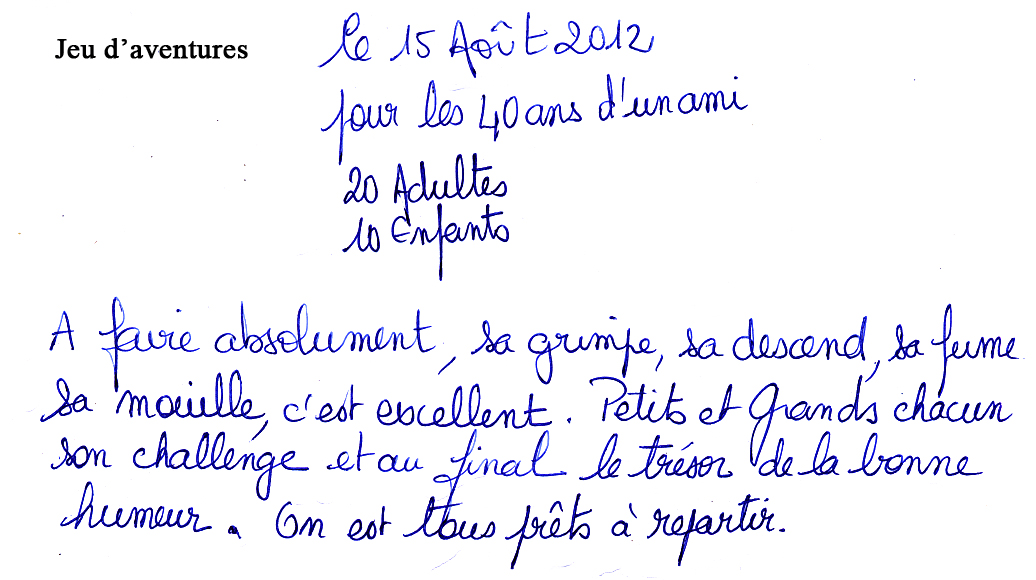 Jeu d'aventures
le 15 Août 2012
pour les 40 ans d'un ami
20 Adultes
10 Enfants
A faire absolument, sa grimpe, sa descend, sa fume
sa mouille, c'est excellent. Petits et Grands chacun
son challenge et au final le trésor de la bonne
humeur. On est tous prêts à repartir.